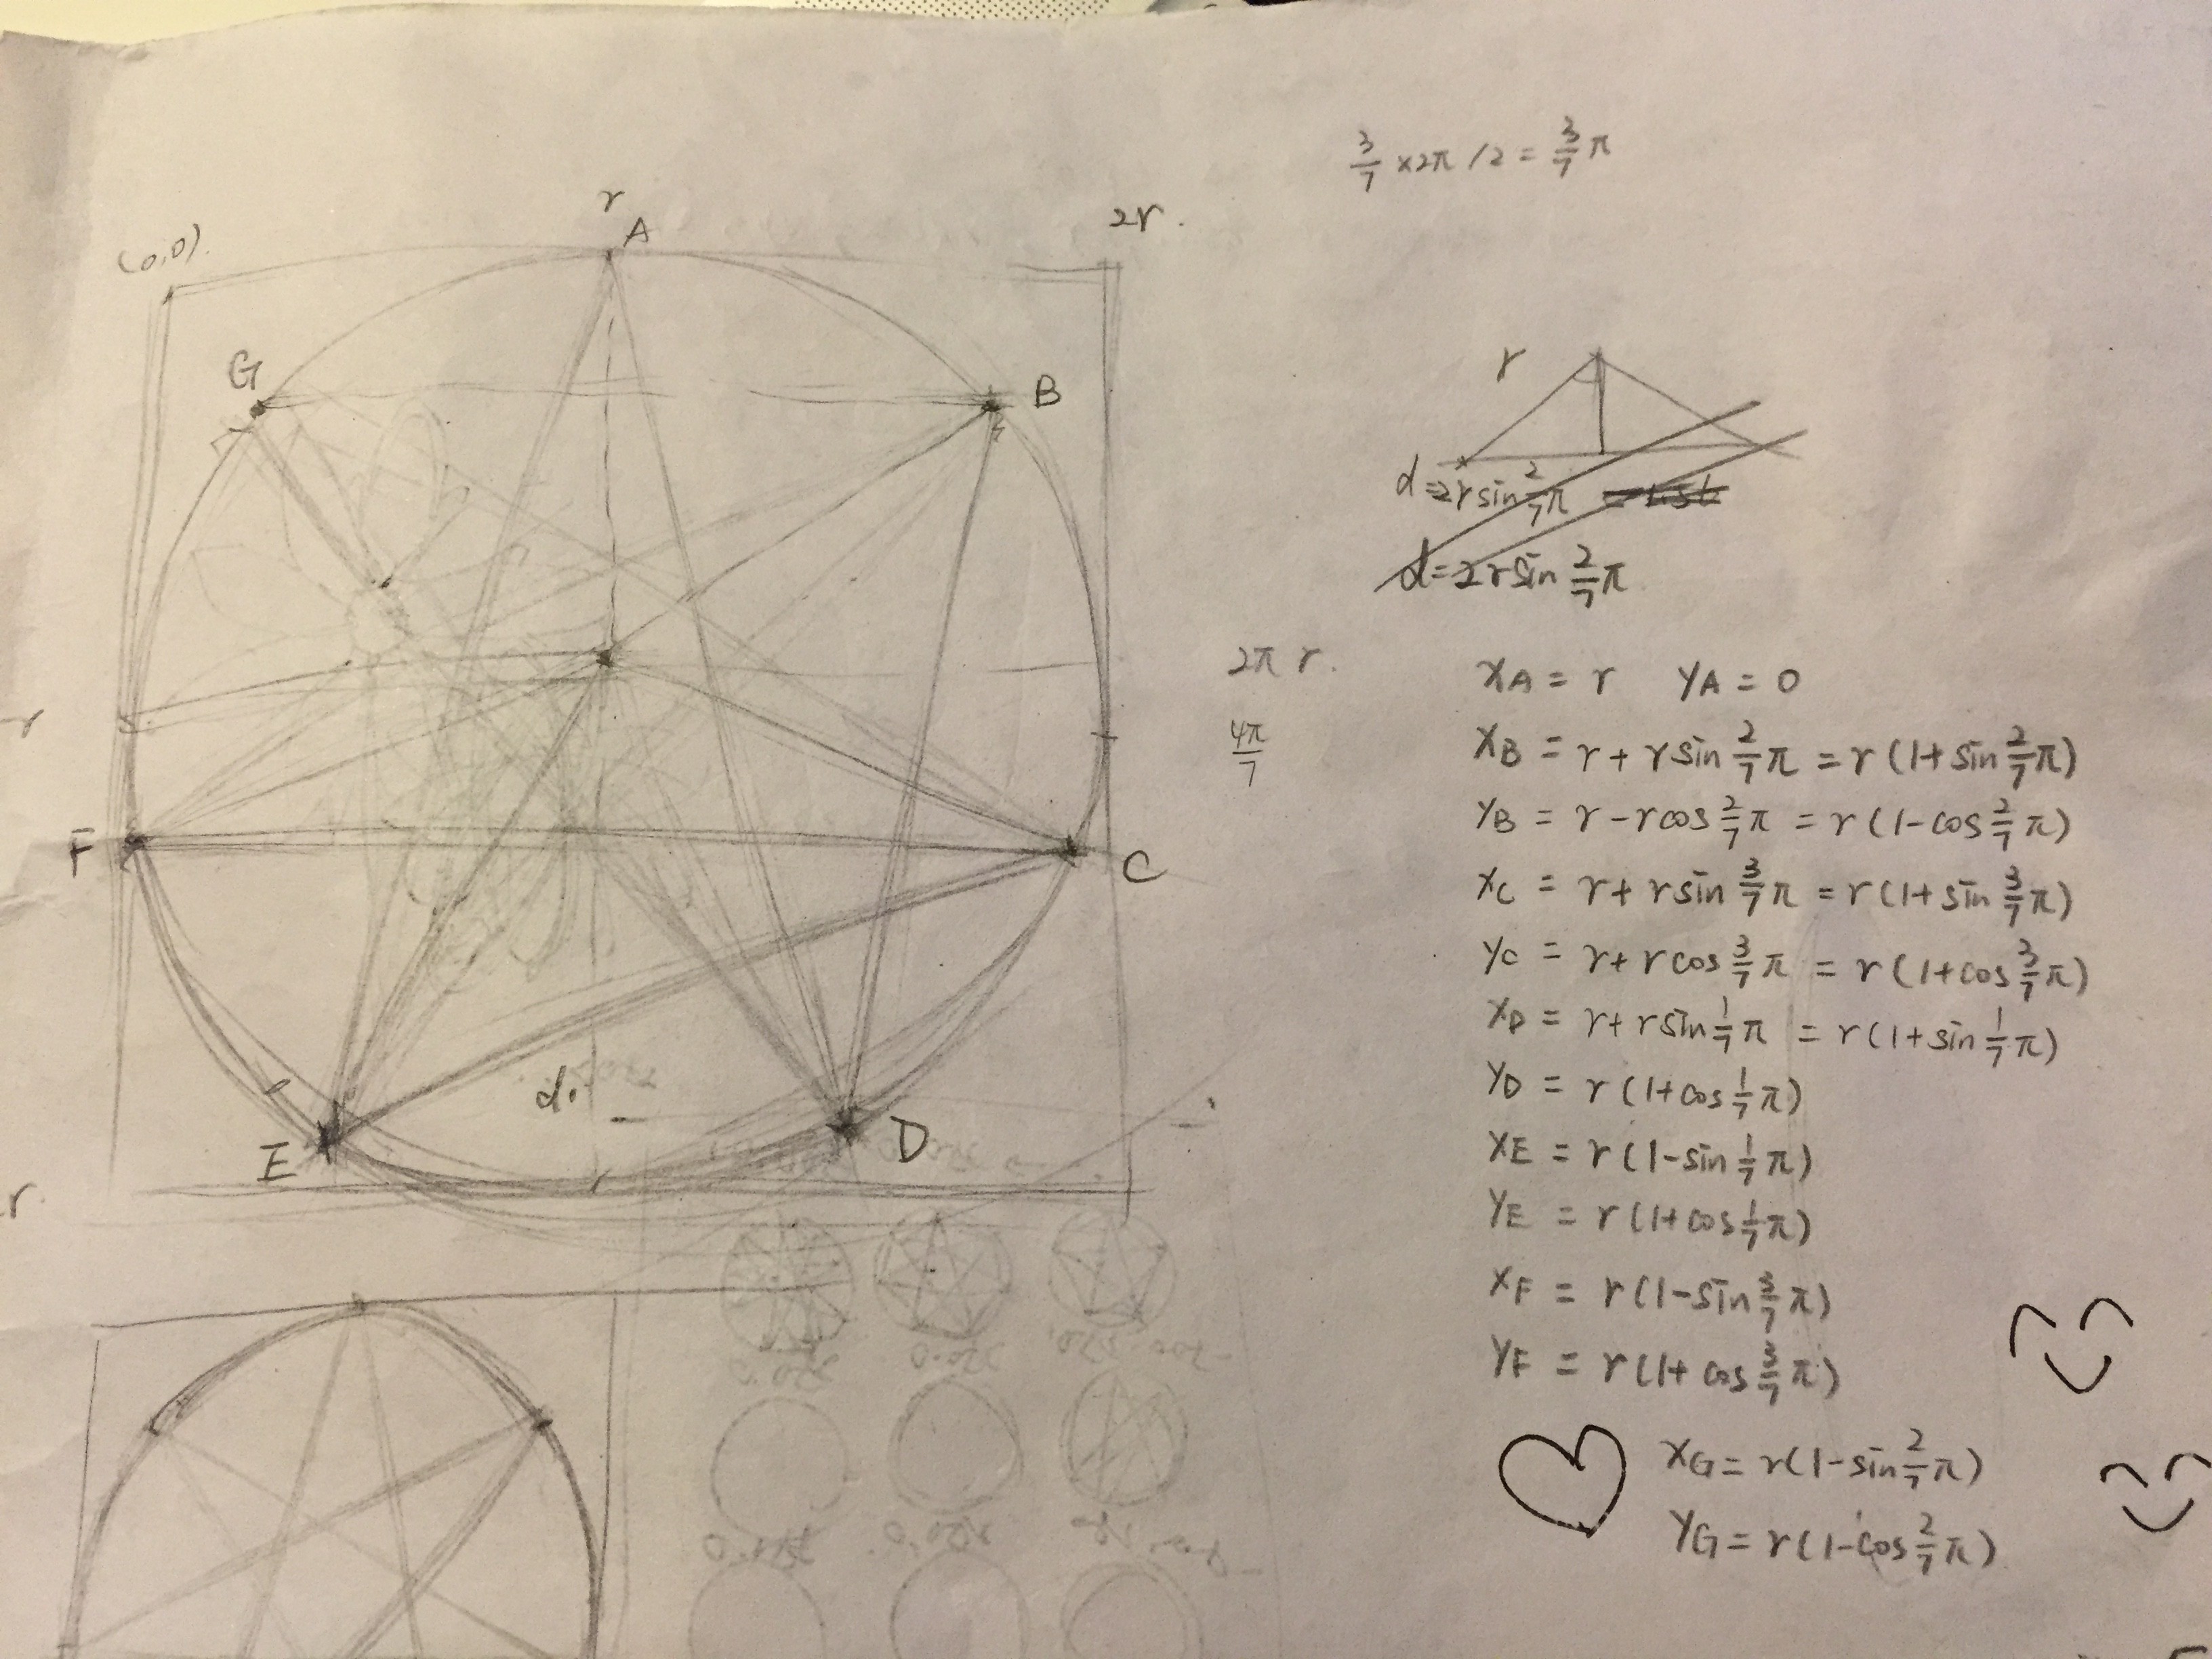 3/7 ×2π /2 = 3/7 π
r
A
2r.
(0,0).
G
B
r
d=2r sin 2/7 π
d=2r sin 2/7 π
2π r.
4π/7
r
F
C
d.
E
D
r.
XA = r YA = 0
XB = r + r sin 2/7 π = r (1+ sin 2/7 π)
YB = r - r cos 2/7 π = r (1- cos 2/7 π)
XC = r + r sin 3/7 π = r (1+ sin 3/7 π)
YC = r + r cos 3/7 π = r (1+ cos 3/7 π)
XD = r + r sin 1/7 π = r (1+ sin 1/7 π)
YD = r (1+ cos 1/7 π)
XE = r (1- sin 1/7 π)
YE = r (1+ cos 1/7 π)
XF = r (1- sin 3/7 π)
YF = r (1+ cos 3/7 π)
XG = r (1- sin 2/7 π)
YG = r (1- cos 2/7 π)